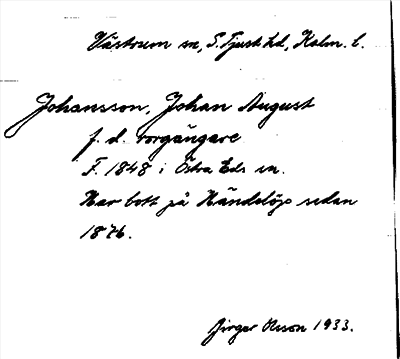 Västrum sn, S. Tjust hd, Kalm. l.
Johansson, Johan August
f. d. rorgängare
F. 1848 i Östra Eds sn.
Har bott på Händelöp sedan
1876.
Birger Olsson 1933.